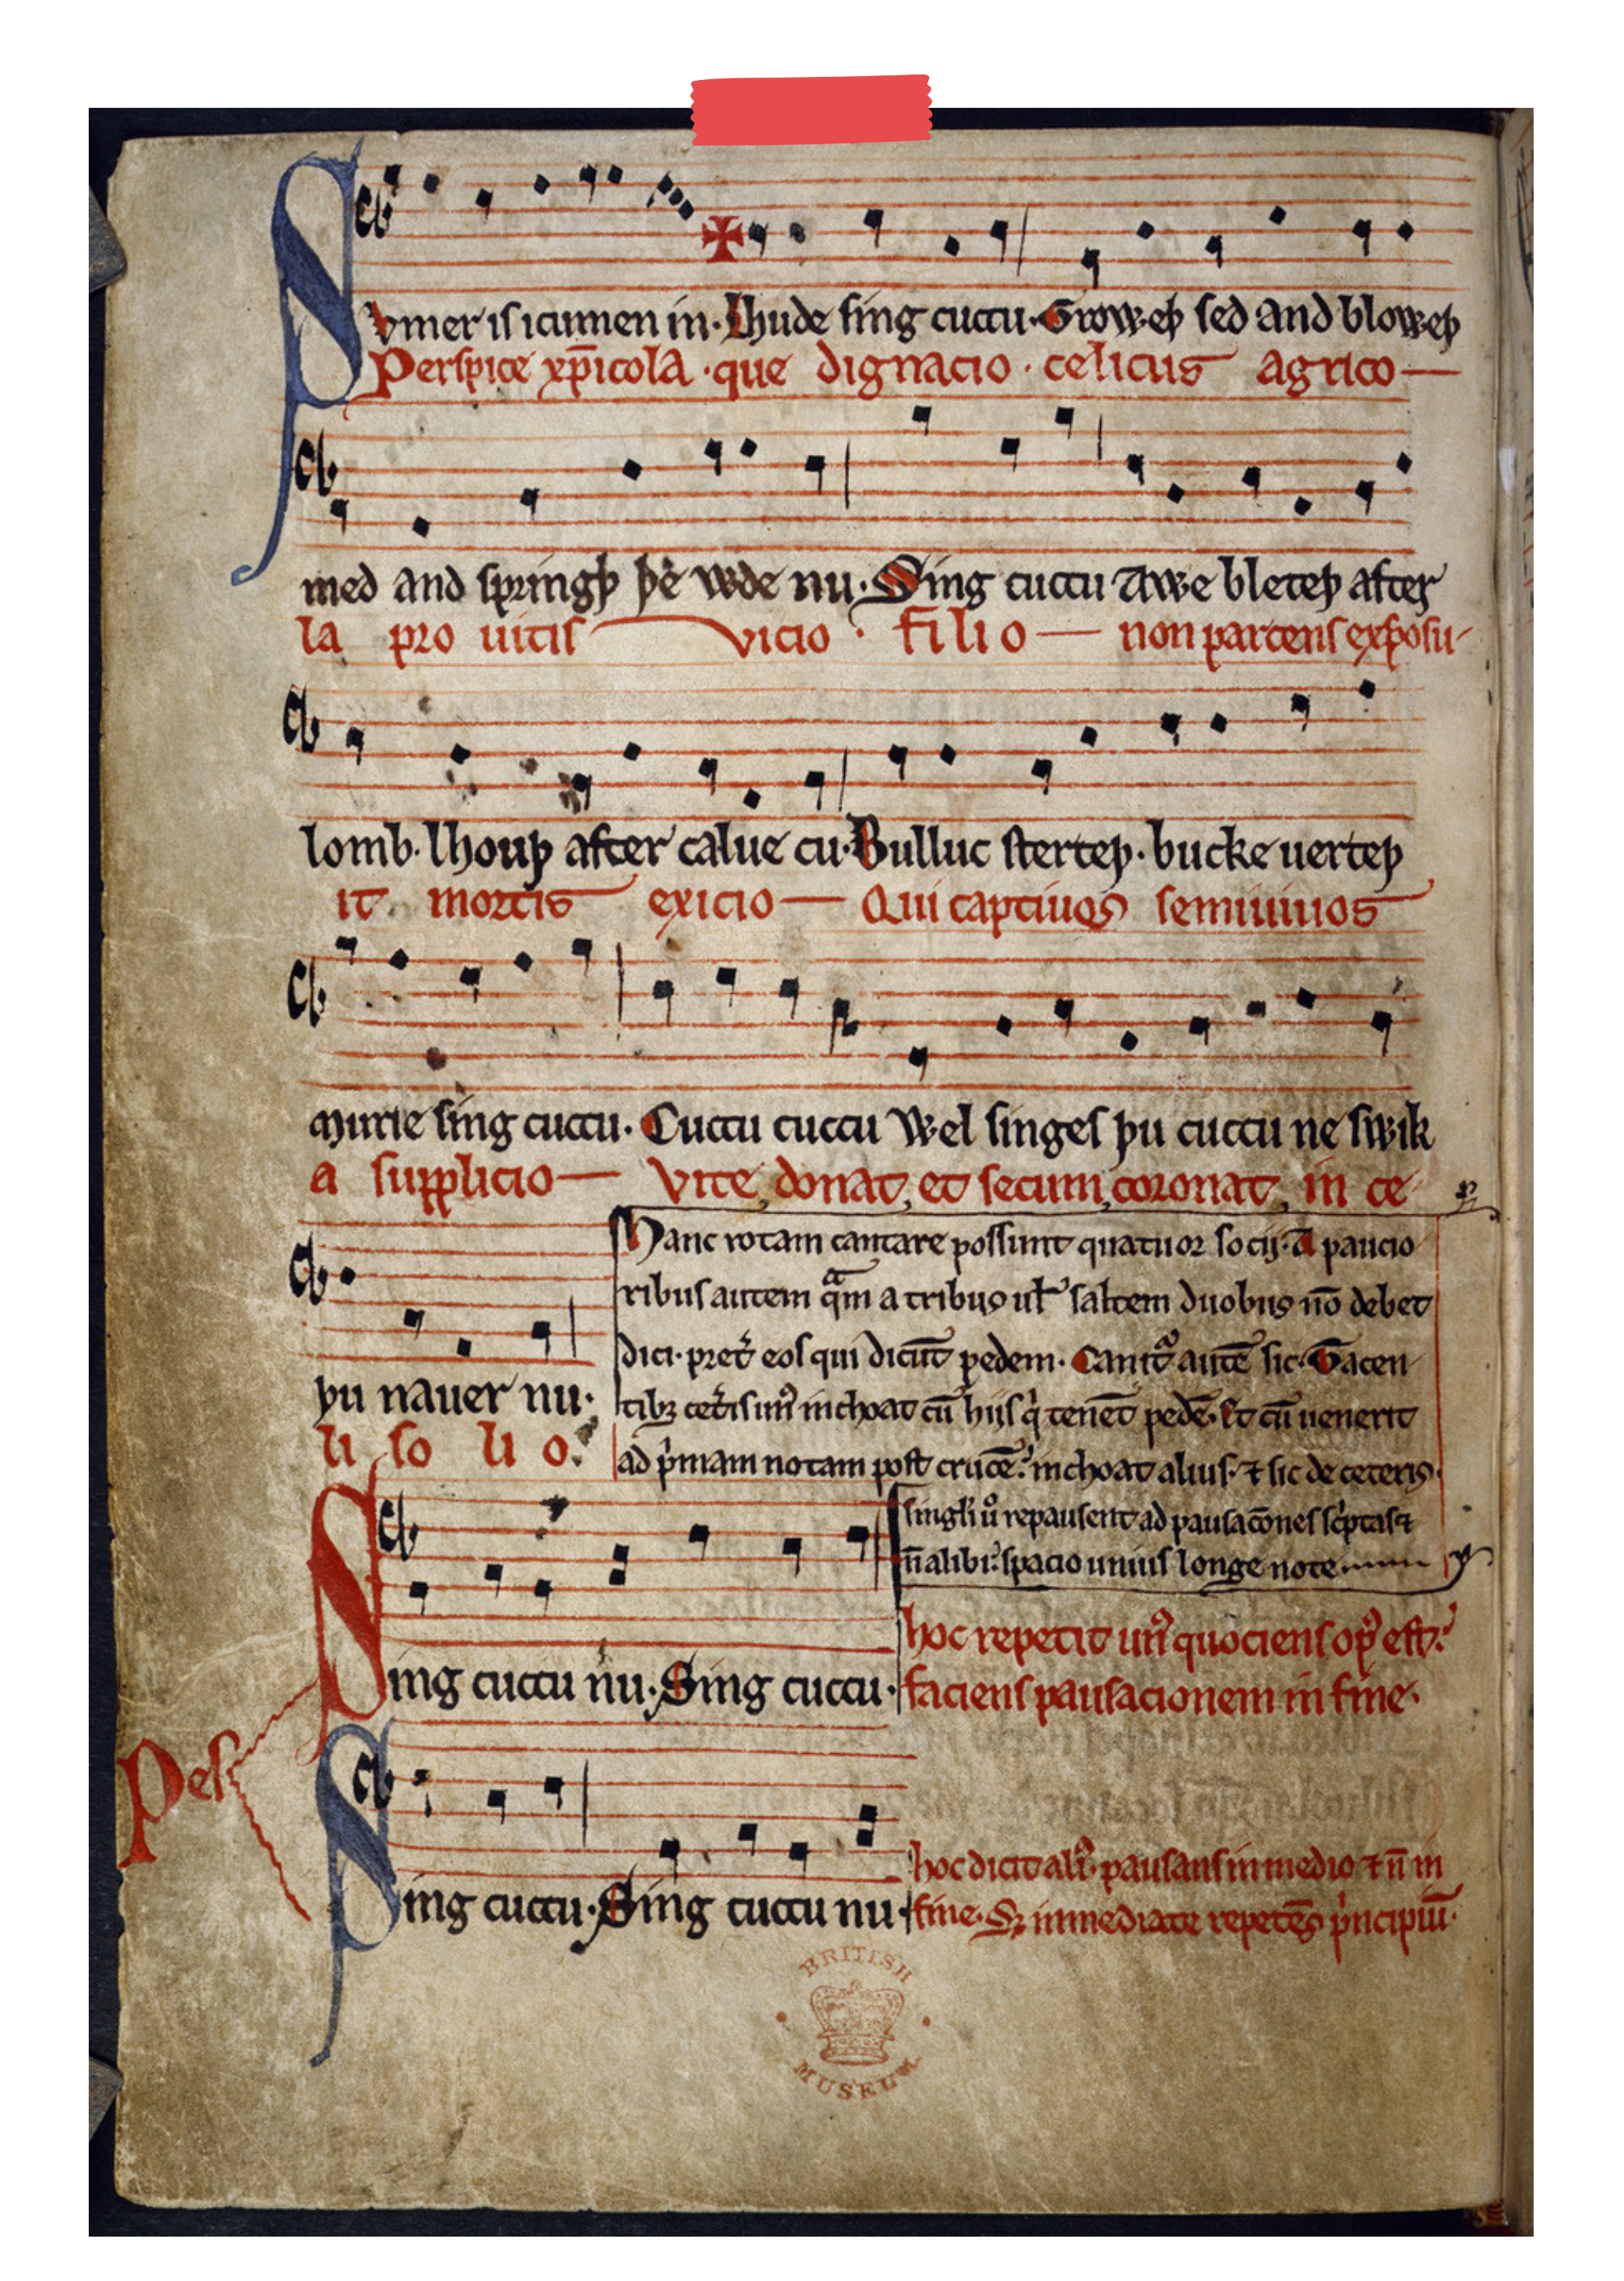 Svmer is icumen in· Lhude sing cuccu· Groweþ sed and bloweþ
Perspice xp̄icola · que dignacio · celicus agrico—
med and springþ þe wde nu· Sing cuccu Awe bleteþ after
la pro uitis vicio · filio — non parcens exposu-
lomb· lhouþ after calue cu· Bulluc sterteþ· bucke uerteþ
it mortis exicio — Qui captiuos semiuiuos
murie sing cuccu· Cuccu cuccu Wel singes þu cuccu ne swik
a supplicio — Vite donat et secum coronat in ce
þu nauer nu·
li so li o·
Hanc rotam cantare possunt quatuor socij· A paucio
ribus autem q̄m a tribus ul' saltem duobus nō debet
dici· pret' eos qui dicūt pedem· Canit' autē sic· Tacen
tibꝫ cet'is un' inchoat cū hijs q' tenēt pedē· Et cū uenerit
ad p'mam notam post crucē: inchoat alius· ⁊ sic de ceteris
singl'i u' repausent ad pausacōnes sc'ptas ⁊
n̄ alibi: spacio unius longe note
Sing cuccu nu· Sing cuccu·
hoc repetit un' quociens op' est:
faciens pausacionem in fine·
Pes
Sing cuccu· Sing cuccu nu·
hoc dicit ali'· pausans in medio ⁊ n̄ in
fine· Sꝫ immediate repetēs p'ncipiū·
BRITISH
MUSEUM